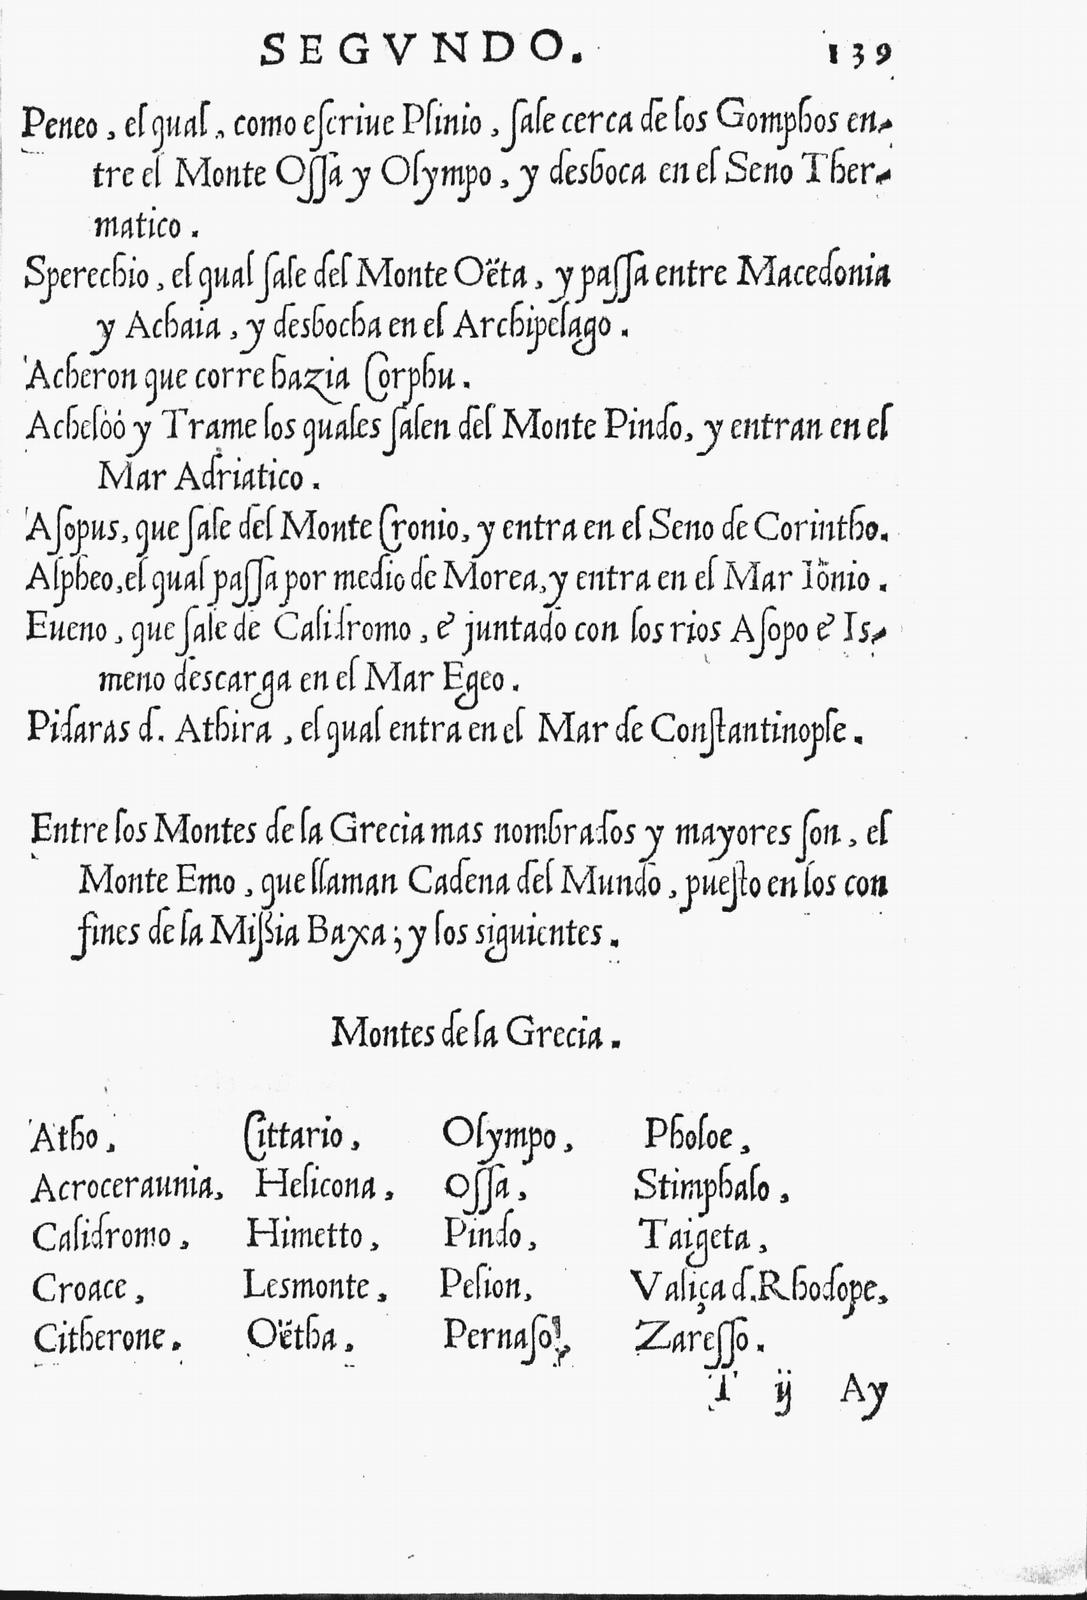 SEGVNDO. 139
Peneo, el qual, como eſcriue Plinio, ſale cerca de los Gomphos en-
tre el Monte Oſſa y Olympo, y desboca en el Seno Ther-
matico.
Sperechio, el qual ſale del Monte Oëta, y paſſa entre Macedonia
y Achaia, y desbocha en el Archipelago.
Acheron que corre hazia Corphu.
Achelòó y Trame los quales ſalen del Monte Pindo, y entran en el
Mar Adriatico.
Aſopus, que ſale del Monte Cronio, y entra en el Seno de Corintho.
Alpheo, el qual paſſa por medio de Morea, y entra en el Mar Iönio.
Eueno, que ſale de Calidromo, é juntado con los rios Aſopo é Is-
meno descarga en el Mar Egeo.
Pidaras d. Athira, el qual entra en el Mar de Conſtantinople.
Entre los Montes de la Grecia mas nombrados y mayores ſon, el
Monte Emo, que llaman Cadena del Mundo, pueſto en los con
fines de la Miſsia Baxa; y los siguientes.
Montes de la Grecia.
Atho, Cittario, Olympo, Pholoe,
Acroceraunia, Helicona, Oſſa, Stimphalo,
Calidromo, Himetto, Pindo, Taigeta,
Croace, Lesmonte, Pelion, Valiça d. Rhodope,
Citherone. Oëtha. Pernaſo, Zareſſo.
T ij Ay